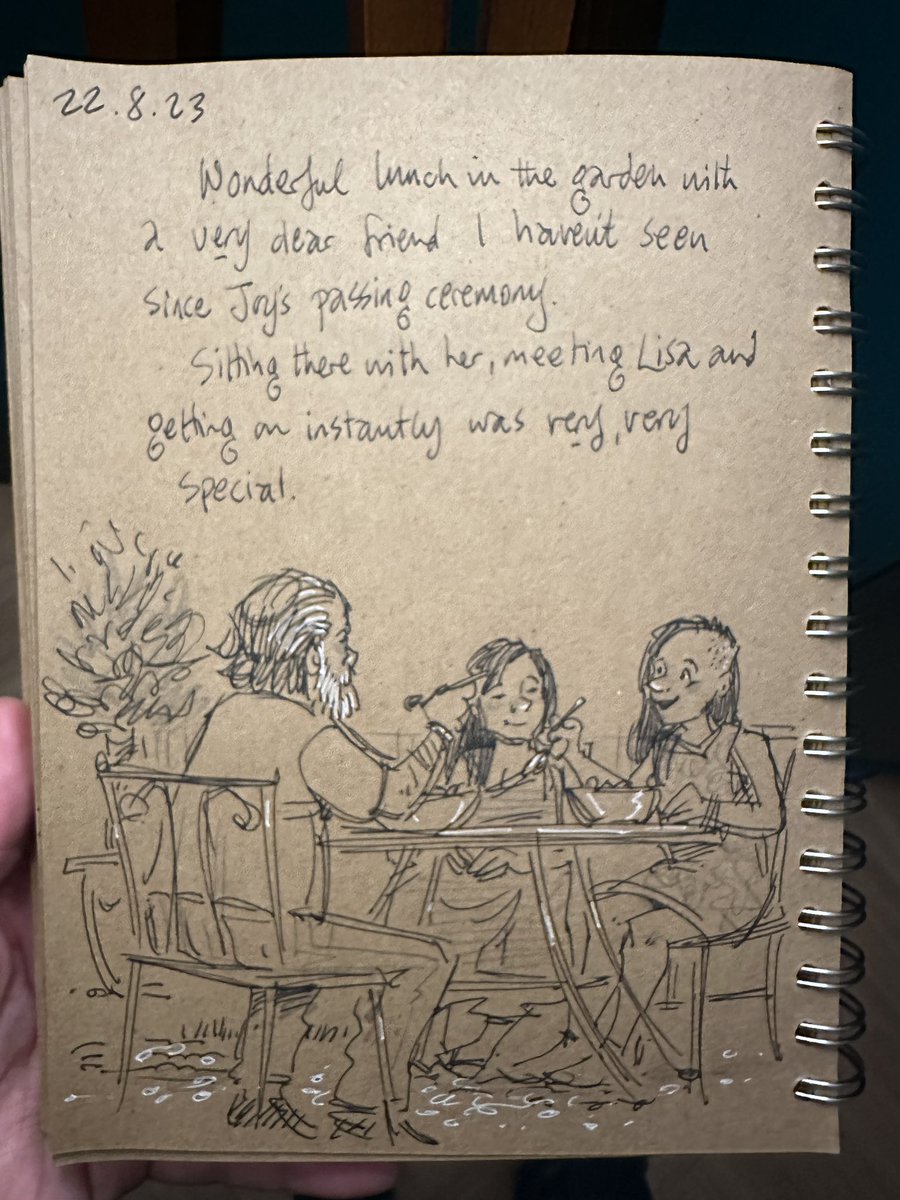 22.8.23
Wonderful lunch in the garden with
a very dear friend I haven't seen
since Joy's passing ceremony.
Sitting there with her, meeting Lisa and
getting on instantly was very, very
special.